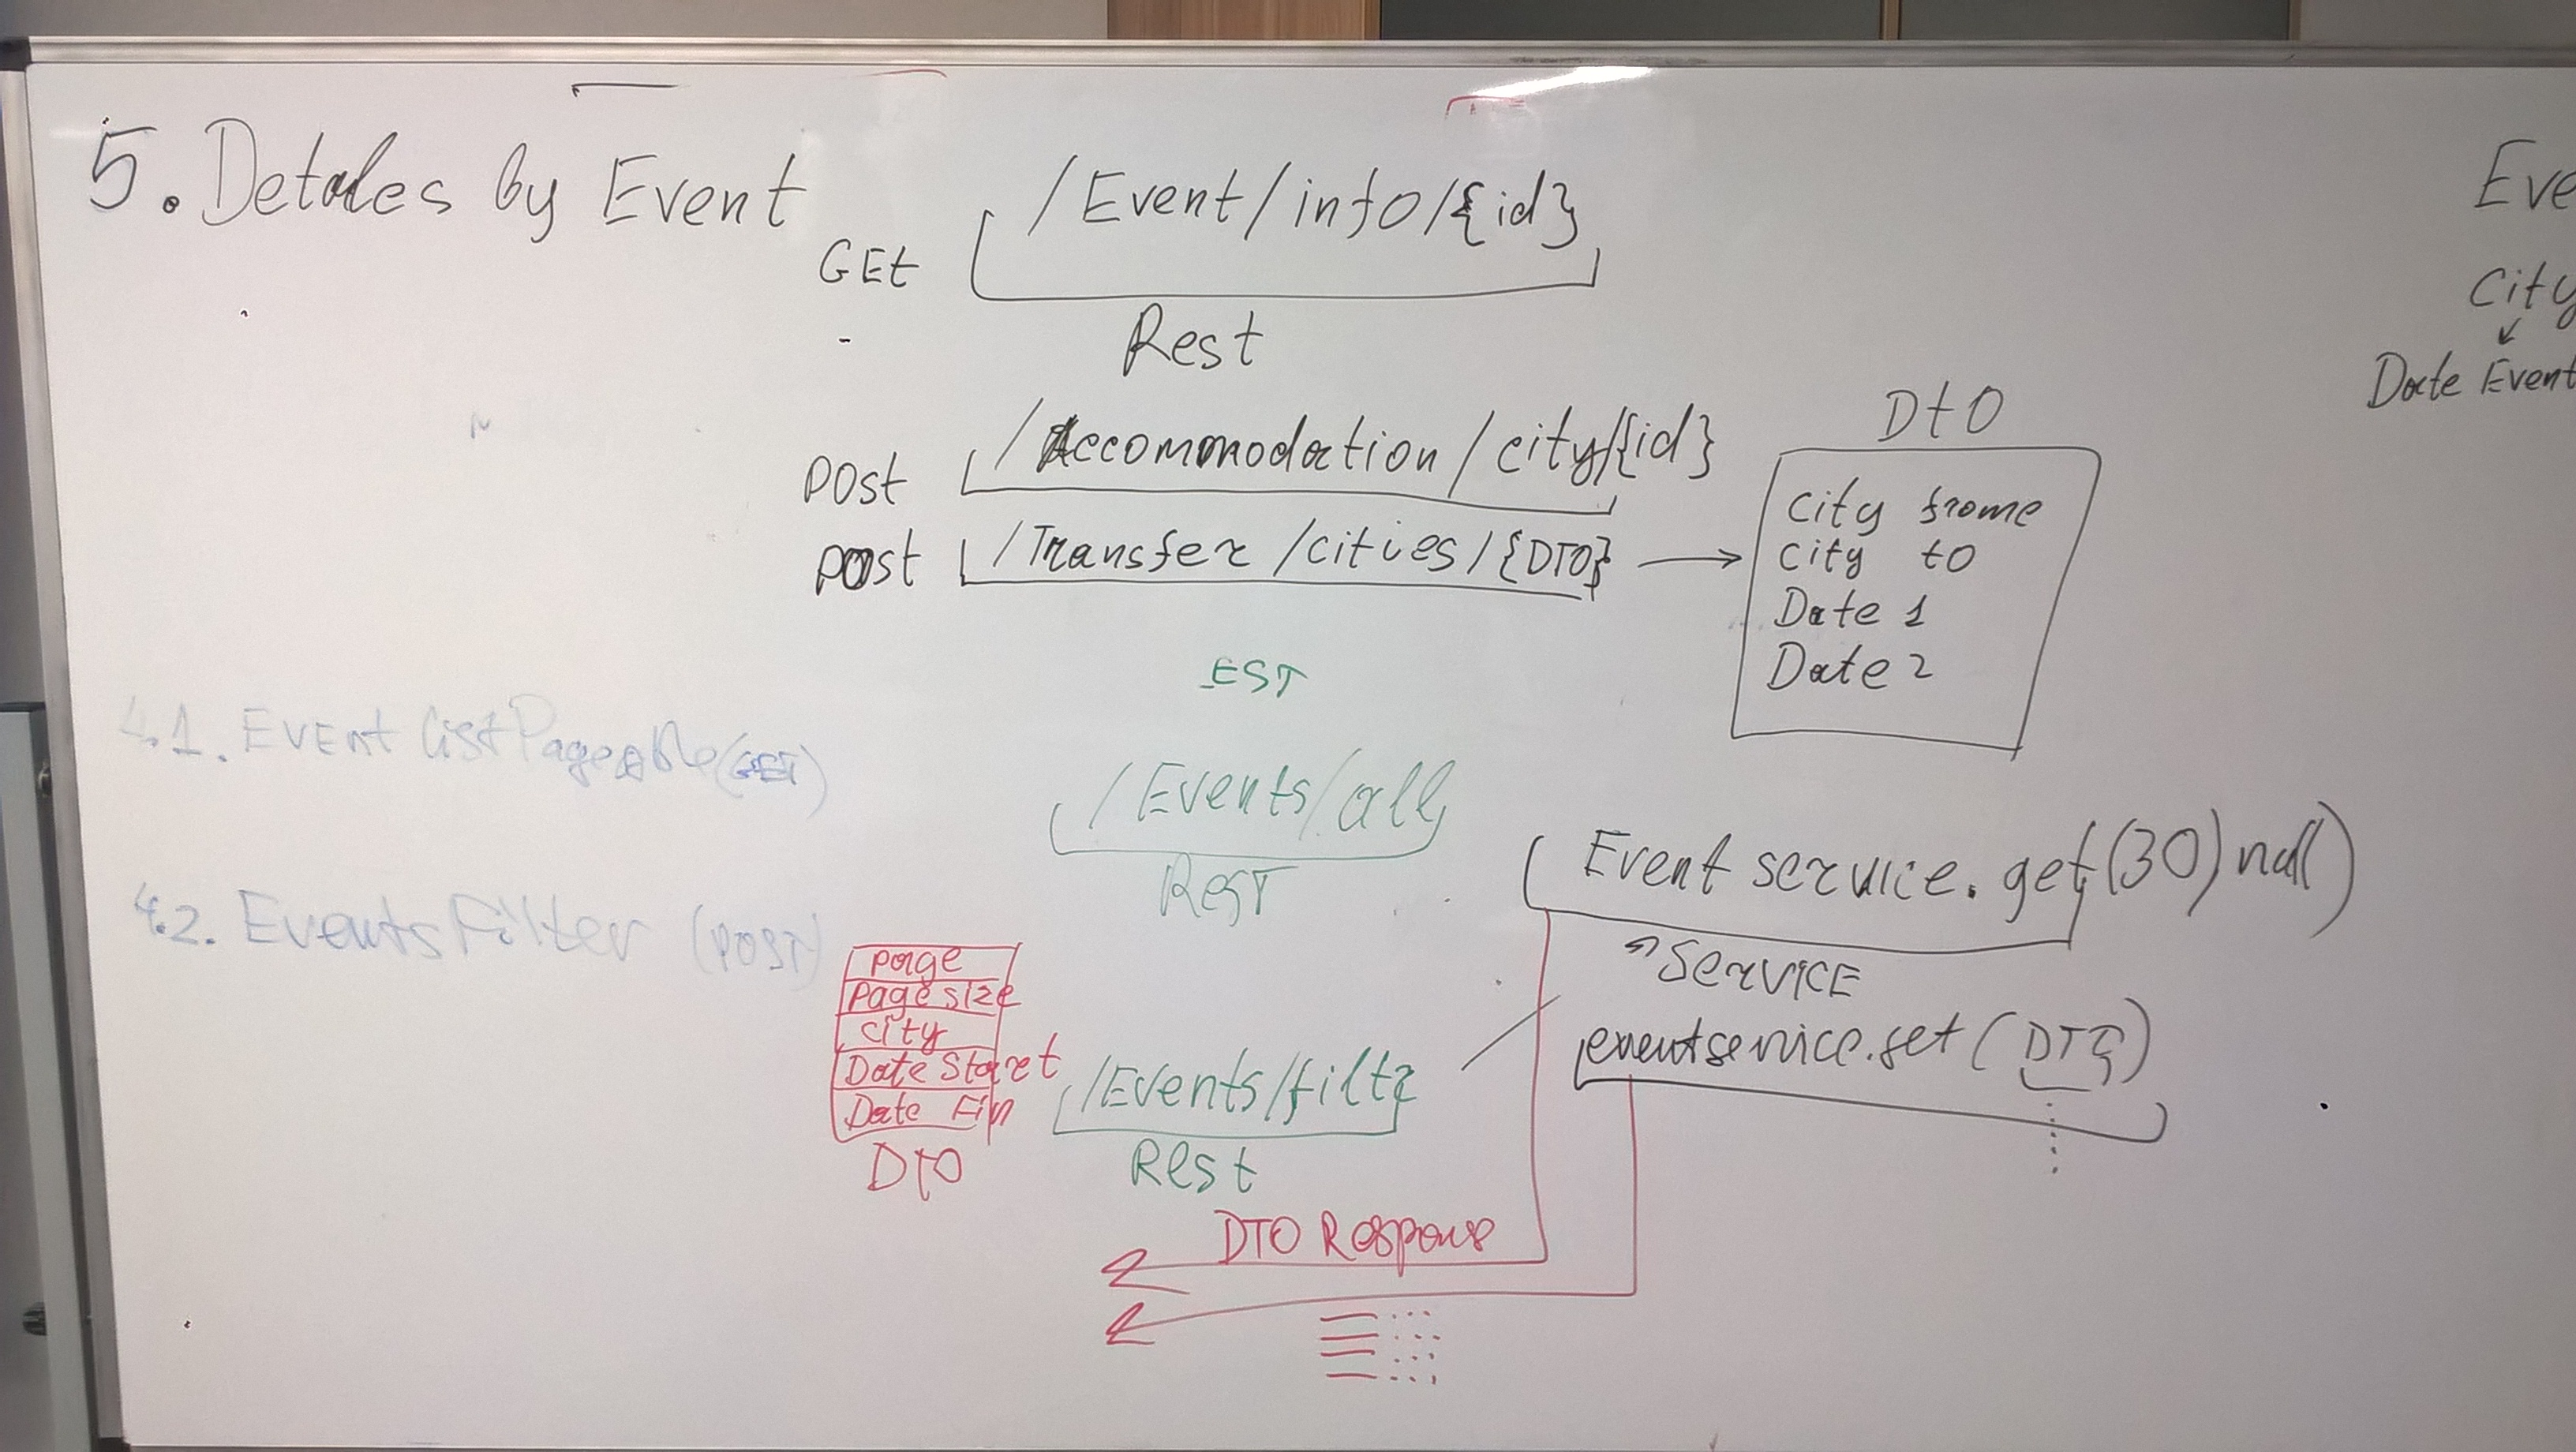 5. Detales by Event
GEt /Event/info/{id}
Rest
post /Accommodation/city/{id}
post /Transfer/cities/{DTO}
DtO
City frome
City to
Date 1
Date 2
Eve
City
Date Event
EST
4.1. Event list Pageable (GET)
/Events/all
REST
Event service.get(30) null)
SERVICE
4.2. Events Filter (POST)
page
page size
city
Date Start
Date Fin
DtO
/Events/filtr
Rest
eventservice.get (DTO)
DTO Response